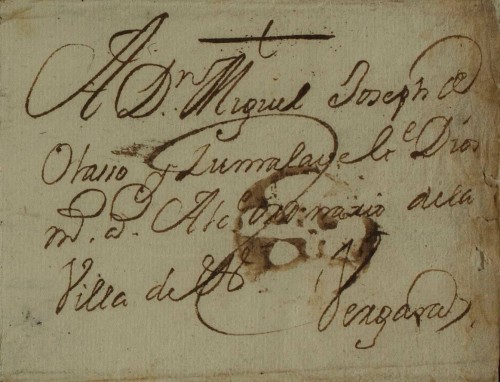 A Dn. Miguel Joseph de
Olasso y Zumalaye gle. Dios
ms. as. Alce. ordinario de la
Villa de
Vergara